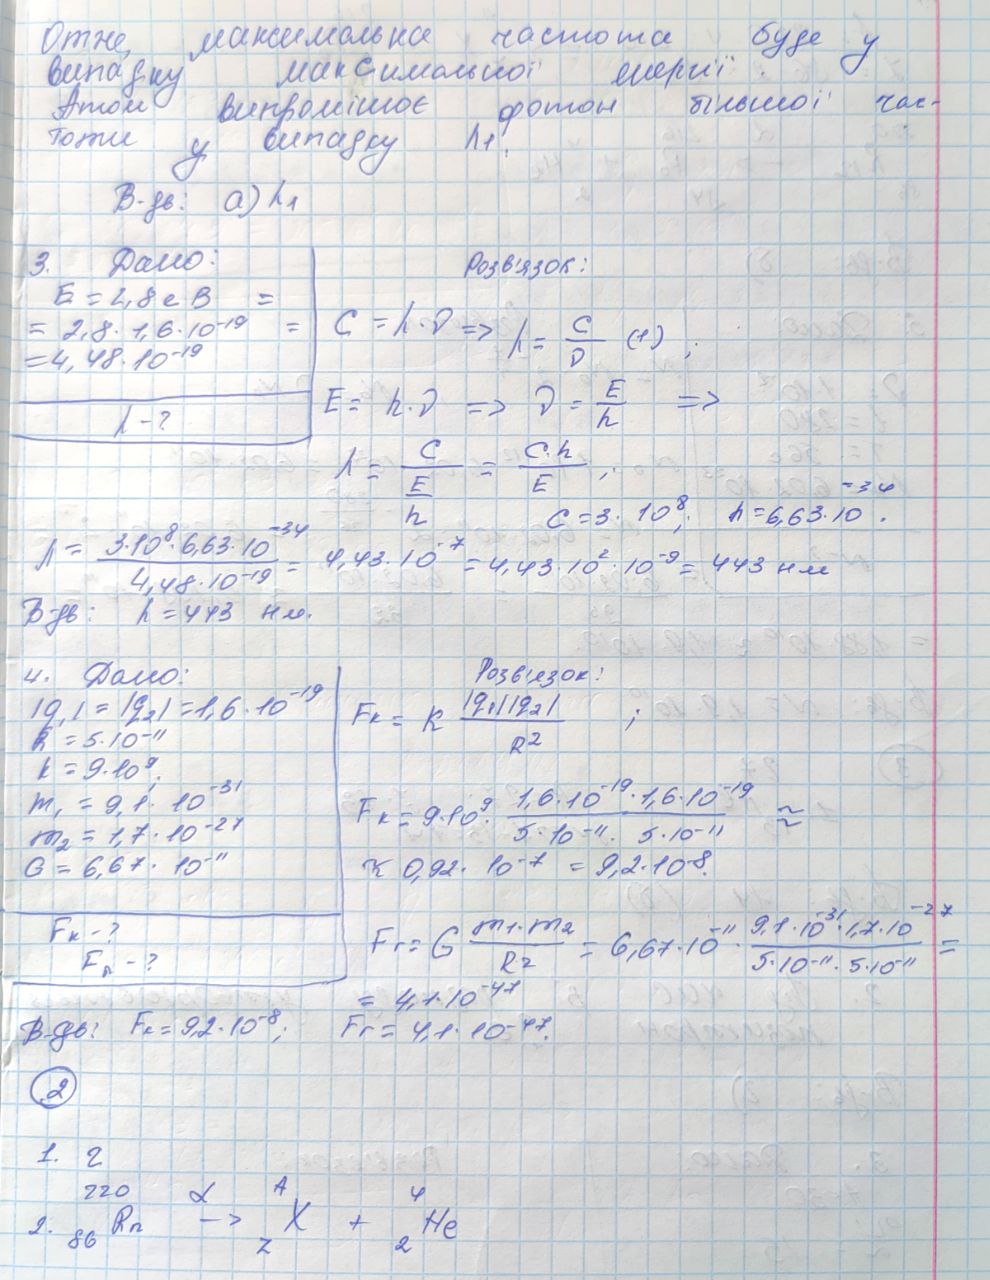 Отже, максимальна частота буде у
випадку максимальної енергії.
Атом випромінює фотон більшої час-
тоти у випадку h1.
В-дь: а) h1
3. Дано:
E = 2,8 еВ =
= 2,8·1,6·10⁻¹⁹ =
= 4,48·10⁻¹⁹
λ - ?
Розв'язок:
C = λ·ν => λ = C/ν (1);
E = h·ν => ν = E/h =>
λ = C/(E/h) = C·h/E;
C = 3·10⁸; h = 6,63·10⁻³⁴.
λ = 3·10⁸·6,63·10⁻³⁴/4,48·10⁻¹⁹ = 4,43·10⁻⁷ = 4,43·10²·10⁻⁹ = 443 нм
В-дь: λ = 443 нм.
4. Дано:
|q₁| = |q₂| = 1,6·10⁻¹⁹
R = 5·10⁻¹¹
k = 9·10⁹;
m₁ = 9,1·10⁻³¹
m₂ = 1,7·10⁻²⁷
G = 6,67·10⁻¹¹
Fк - ?
Fг - ?
Розв'язок:
Fк = k |q₁||q₂|/R²;
Fк = 9·10⁹· 1,6·10⁻¹⁹·1,6·10⁻¹⁹/5·10⁻¹¹·5·10⁻¹¹ ≈
≈ 0,92·10⁻⁷ = 9,2·10⁻⁸.
Fг = G m₁·m₂/R² = 6,67·10⁻¹¹· 9,1·10⁻³¹·1,7·10⁻²⁷/5·10⁻¹¹·5·10⁻¹¹ =
= 4,1·10⁻⁴⁷
В-дь: Fк = 9,2·10⁻⁸; Fг = 4,1·10⁻⁴⁷.
2
1. г
2. ²²⁰₈₆Rn α -> ᴬ_Z X + ⁴₂He